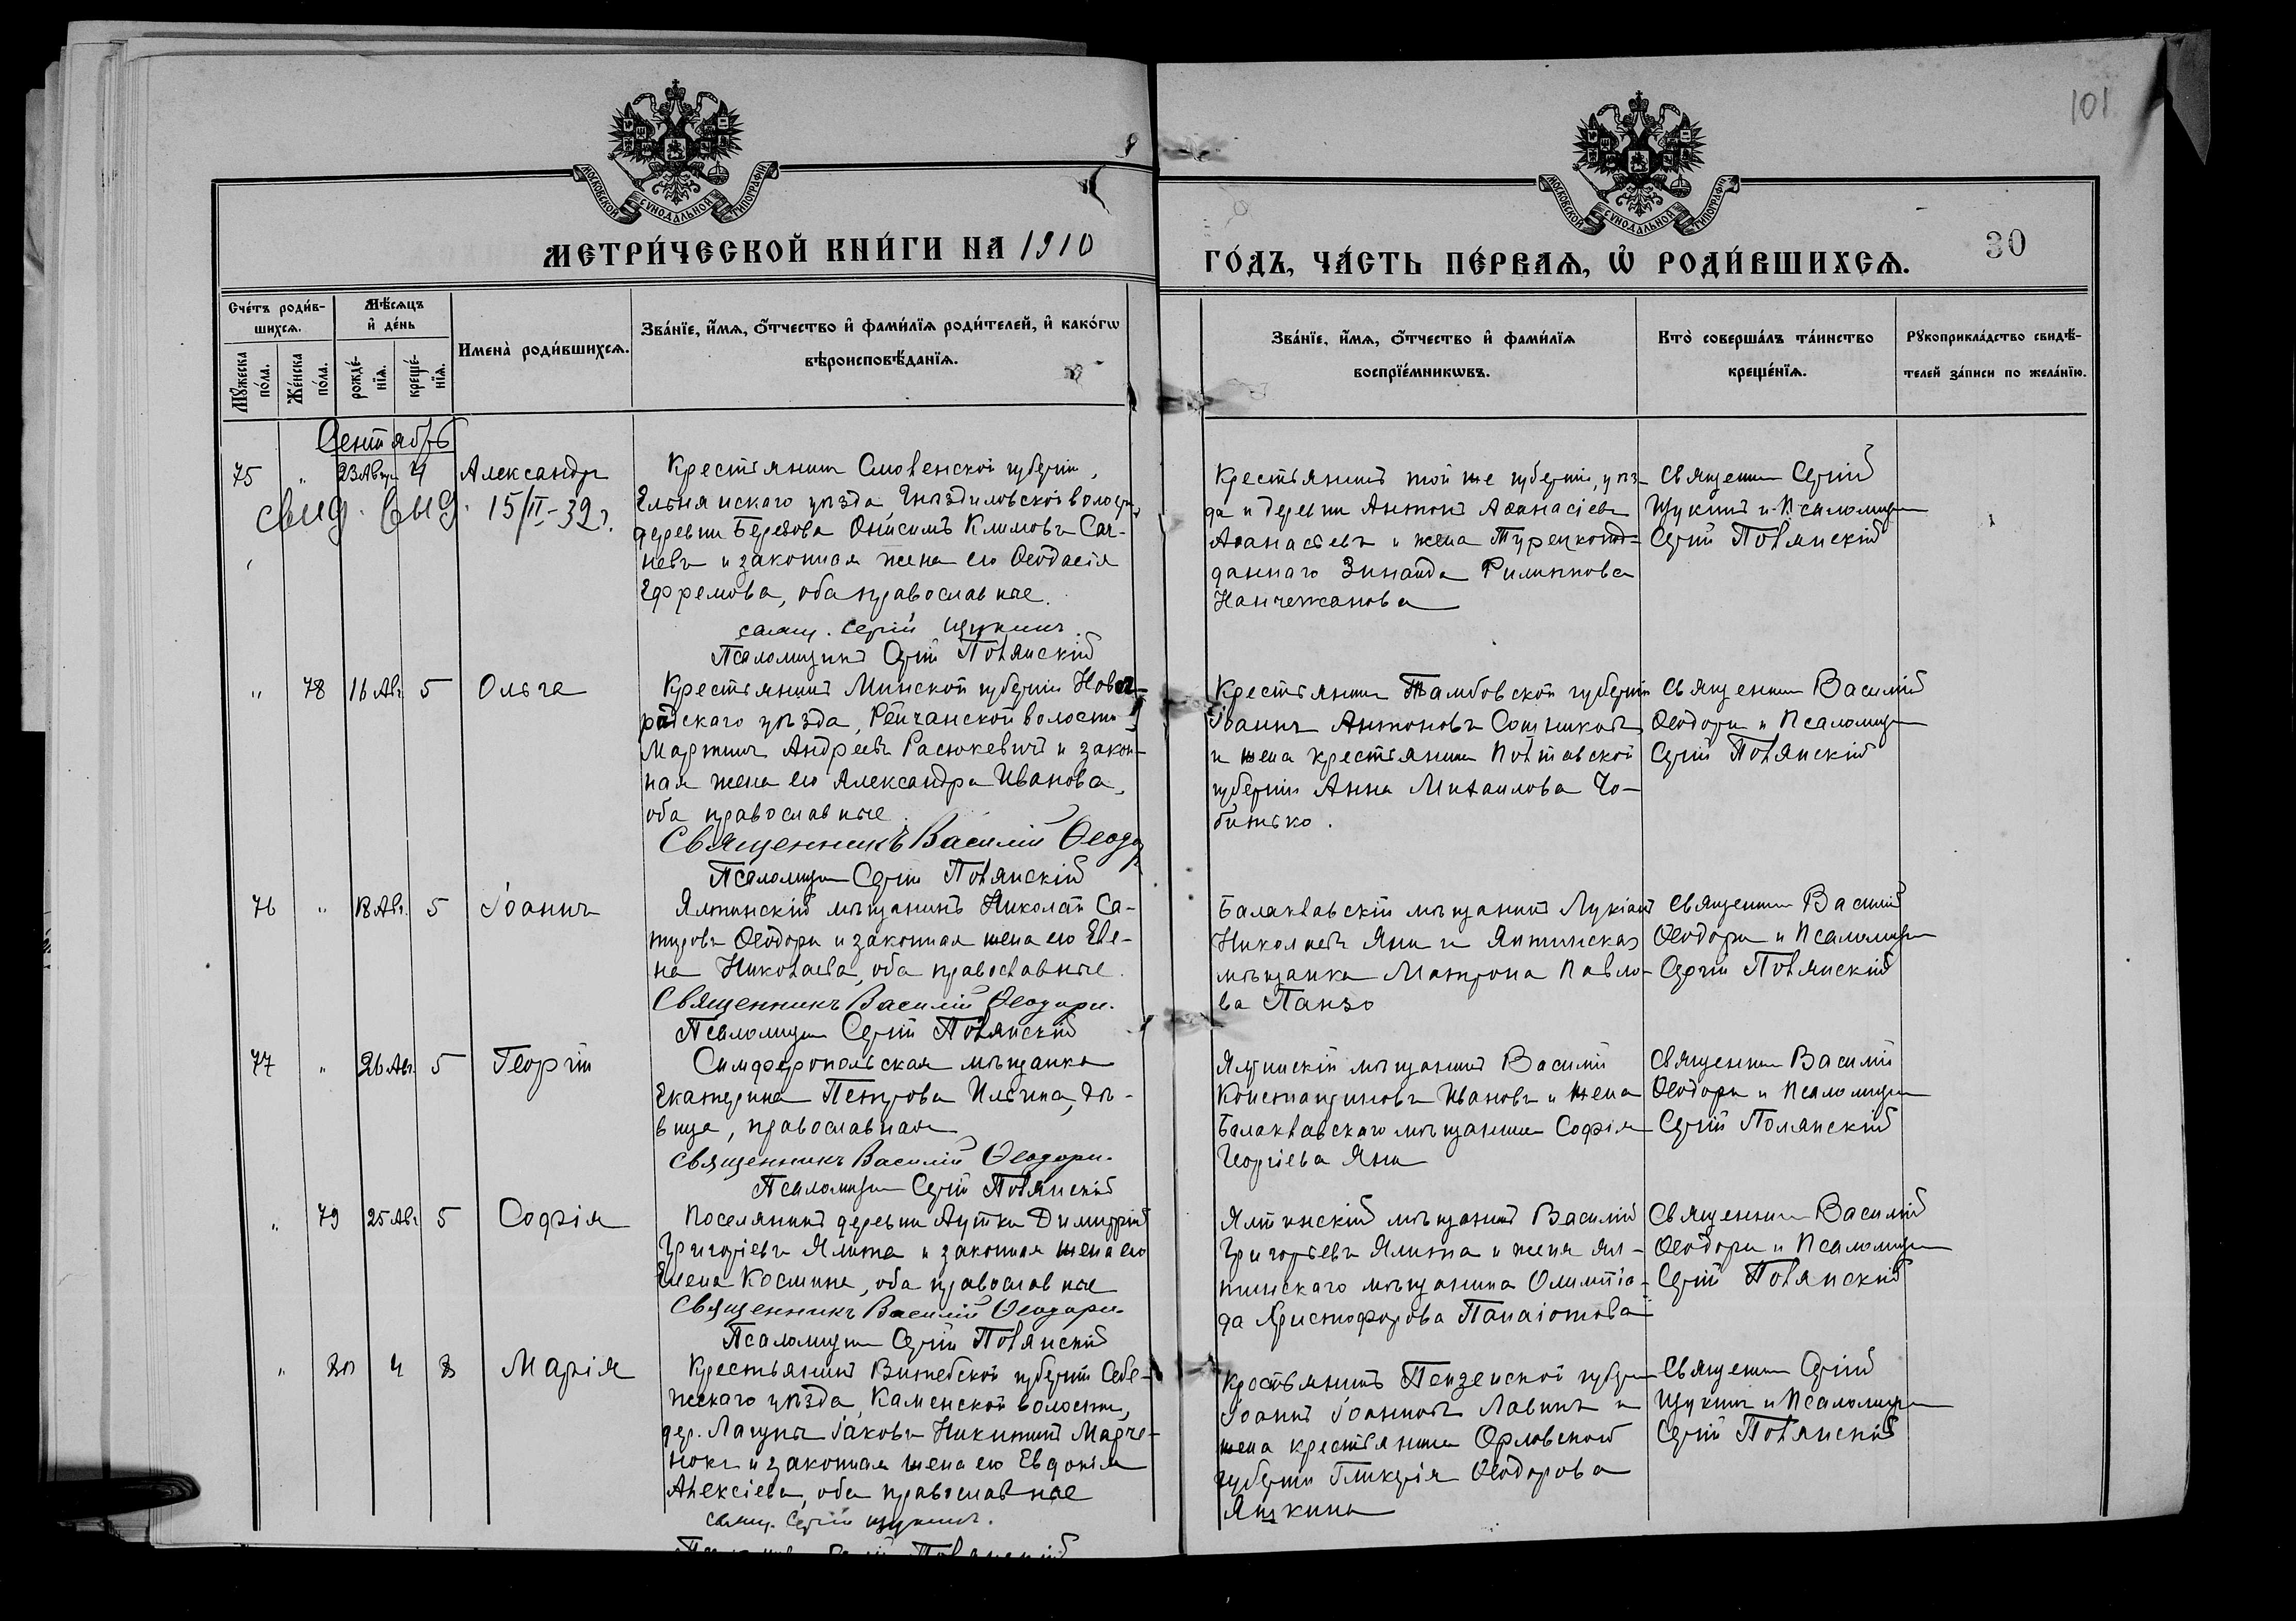 101
МОСКОВСКОЙ СУНОДАЛЬНОЙ ТИПОГРАФІИ
МОСКОВСКОЙ СУНОДАЛЬНОЙ ТИПОГРАФІИ
МЕТРИ́ЧЕСКОЙ КНИ́ГИ НА 1910
ГО́ДЪ, ЧА́СТЬ ПЕ́РВАѦ, Ѡ҆ РОДИ́ВШИХСѦ.
30
Сче́тъ роди́в-
шихсѧ.
Мѣ́сѧцъ
и҆ де́нь
Мꙋ́жеска по́ла.
Же́нска по́ла.
рожде́-нїѧ.
креще́-нїѧ.
Имена̀ роди́вшихсѧ.
Зва́нїе, и҆́мѧ, ѻ҆́тчество и҆ фами́лїѧ роди́телей, и҆ како́гѡ
вѣроисповѣ́данїѧ.
Зва́нїе, и҆́мѧ, ѻ҆́тчество и҆ фами́лїѧ
воспрїе́мникѡвъ.
Кто̀ соверша́лъ та́инство
креще́нїѧ.
Рꙋкоприкла́дство свидѣ́-
телей за́писи по жела́нїю.
Сентябрь
75 " 23 Авг. 4 Александръ
Свид. выд. 15/II-39 г.
Крестьянинъ Смоленской губерніи,
Ельнинскаго уѣзда, Гнѣздиловской волости,
деревни Березова Онисимъ Климовъ Сач-
невъ и законная жена его Ѳеодосія
Ефремова, оба православные.
свящ. Сергій Щукинъ
Псаломщикъ Сергій Полянскій
Крестьянинъ той же губерніи, уѣз-
да и деревни Антонъ Аѳанасіевъ
Аѳанасьевъ и жена Турецкопод-
даннаго Зинаида Филиппова
Священникъ Сергій
Щукинъ и Псаломщикъ
Сергій Полянскій
" 78 16 Авг. 5 Ольга
Крестьянинъ Минской губерніи Новог-
рудскаго уѣзда, волости
Мартинъ Андреевъ Расюкевичъ и закон-
ная жена его Александра Иванова,
оба православные.
Священникъ Василій Ѳеодори
Псаломщикъ Сергій Полянскій
Крестьянинъ Тамбовской губерніи
Іоаннъ Антоновъ Сотниковъ
и жена крестьянина Полтавской
губерніи Анна Михаилова Чо-
битько.
Священникъ Василій
Ѳеодори и Псаломщикъ
Сергій Полянскій
76 " 18 Авг. 5 Іоаннъ
Ялтинскій мѣщанинъ Николай Са-
Ѳеодори и законная жена его Еле-
на Николаева, оба православные.
Священникъ Василій Ѳеодори.
Псаломщикъ Сергій Полянскій
Балаклавскій мѣщанинъ Лукіанъ
Николаевъ Яни и Ялтинская
мѣщанка Матрона Павло-
ва Панзо
Священникъ Василій
Ѳеодори и Псаломщикъ
Сергій Полянскій
77 " 26 Авг. 5 Георгій
Симферопольская мѣщанка
Екатерина Петрова Ильина, дѣ-
вица, православная
Священникъ Василій Ѳеодори.
Псаломщикъ Сергій Полянскій
Ялтинскій мѣщанинъ Василій
Константиновъ Ивановъ и жена
Балаклавскаго мѣщанина Софія
Георгіева Яни
Священникъ Василій
Ѳеодори и Псаломщикъ
Сергій Полянскій
" 79 25 Авг. 5 Софія
Поселянинъ деревни Аутки Димитрій
Григоріевъ Ялита и законная жена его
Елена Космина, оба православные
Священникъ Василій Ѳеодори.
Псаломщикъ Сергій Полянскій
Ялтинскій мѣщанинъ Василій
Григорьевъ Ялита и жена ял-
тинскаго мѣщанина Олимпіа-
да Христофорова Панаіотова
Священникъ Василій
Ѳеодори и Псаломщикъ
Сергій Полянскій
" 80 4 8 Марія
Крестьянинъ Витебской губерніи Себе-
жскаго уѣзда, Каменской волости,
дер. Лагуны Іаковъ Никитинъ Марче-
нокъ и законная жена его Евдокія
Алексіева, оба православные
свящ. Сергій Щукинъ.
Псаломщикъ Сергій Полянскій
Крестьянинъ Пензенской губерніи
Іоаннъ Іоанновъ Лавинъ и
жена крестьянина Орловской
губерніи Гликерія Ѳеодорова
Яшкина
Священникъ Сергій
Щукинъ и Псаломщикъ
Сергій Полянскій